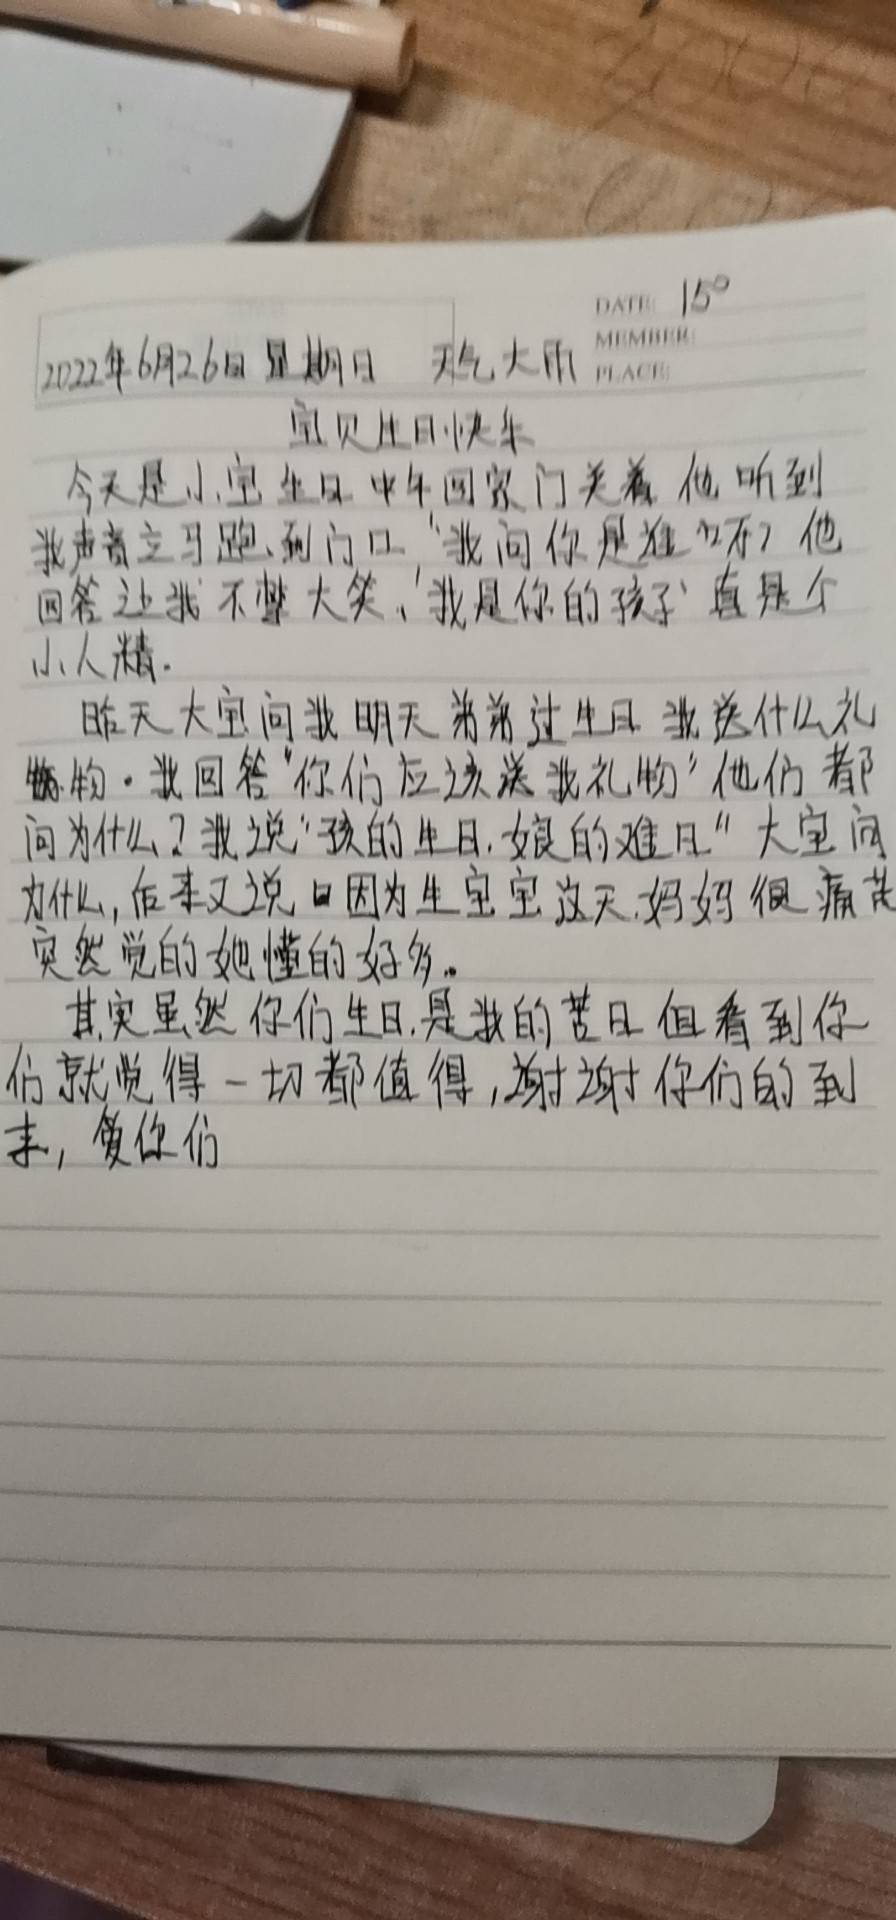 DATE: 15°
MEMBER:
PLACE:
2022年6月26日 星期日 天气大雨
宝贝生日快乐
今天是小宝生日 中午回家门关着 他听到
我声音立马跑到门口 "我问你是谁
他
回答让我不禁大笑,"我是你的孩子" 真是个
小人精.
昨天大宝问我明天弟弟过生日 我送什么礼
物.我回答"你们应该送我礼物"他们都
问为什么?我说"孩的生日.娘的难日"大宝问
为什么,后来又说 因为生宝宝这天.妈妈很痛苦
突然觉的她懂的好多。
其实虽然你们生日.是我的苦日但看到你
们就觉得一切都值得,谢谢你们的到
来,爱你们